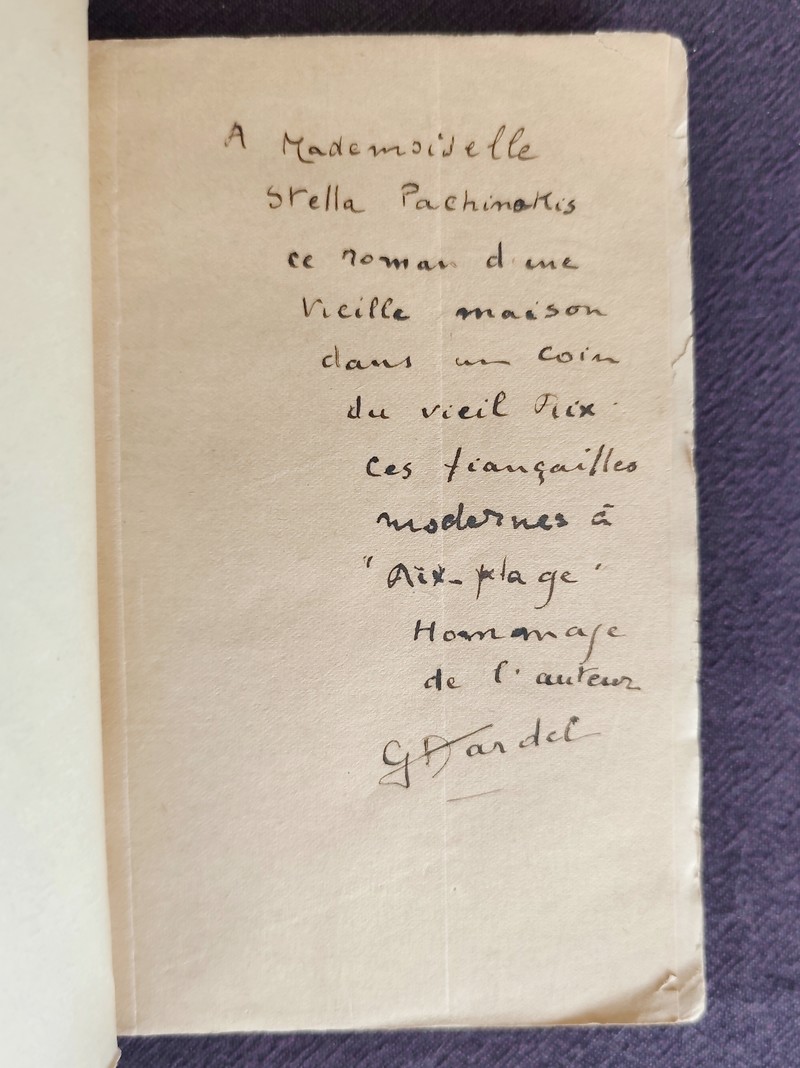 A Mademoiselle
Stella Pachinakis
ce roman d'une
Vieille maison
dans un coin
du vieil Aix.
Ces fiançailles
modernes à
"Aix-plage"
Hommage
de l'auteur
G Dardel